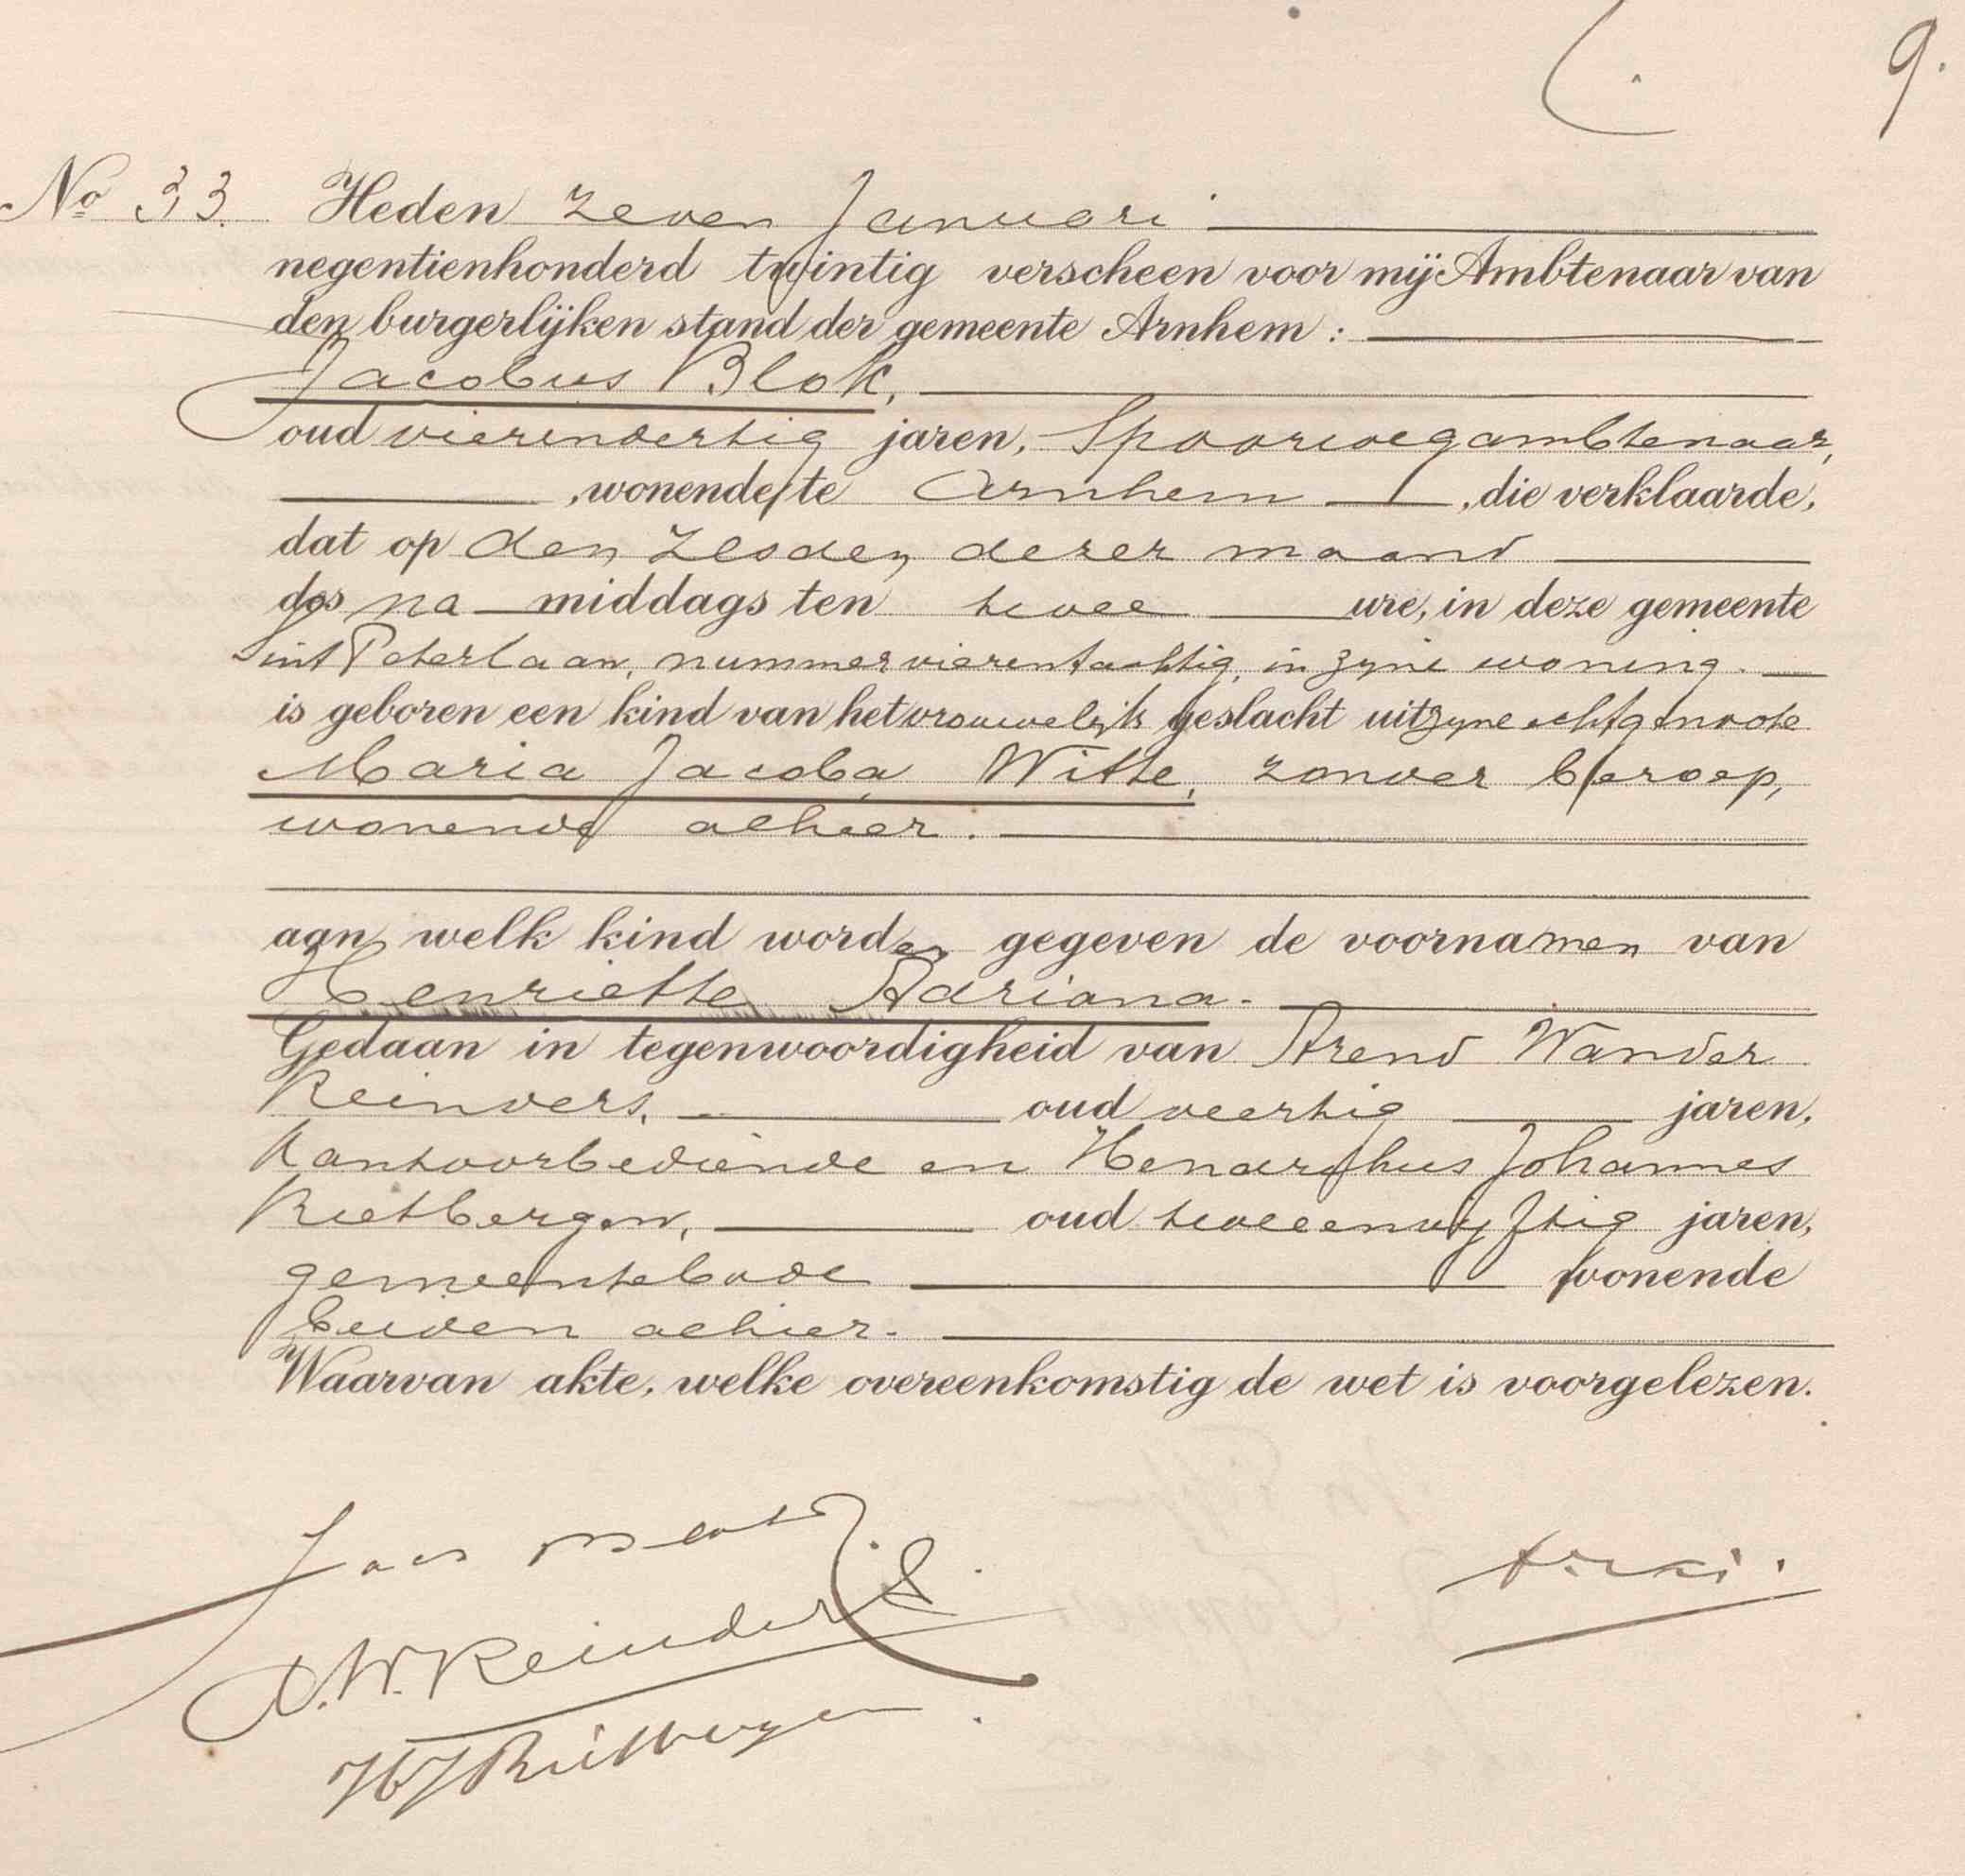 9.
No 33. Heden zeven Januari
negentienhonderd twintig verscheen voor mij Ambtenaar van
den burgerlijken stand der gemeente Arnhem :
Jacobus Blok,
oud vierendertig jaren, Spoorwegambtenaar,
, wonende te Arnhem , die verklaarde,
dat op den zesden dezer maand
des na middags ten twee ure, in deze gemeente
Sint Peterlaan, nummer vierentachtig, in zyne woning.
is geboren een kind van het vrouwelijk geslacht uit zyne echtgenoote
Maria Jacoba Witte, zonder beroep,
wonende alhier.
aan welk kind worden gegeven de voornamen van
Henriette Adriana.
Gedaan in tegenwoordigheid van Arend Wander
Reinders, oud veertig jaren,
Kantoorbediende en Johannes
Rietbergen, oud tweeenvyftig jaren,
gemeentebode wonende
beiden alhier.
Waarvan akte, welke overeenkomstig de wet is voorgelezen.
A.W. Reinders
HJ Rietbergen